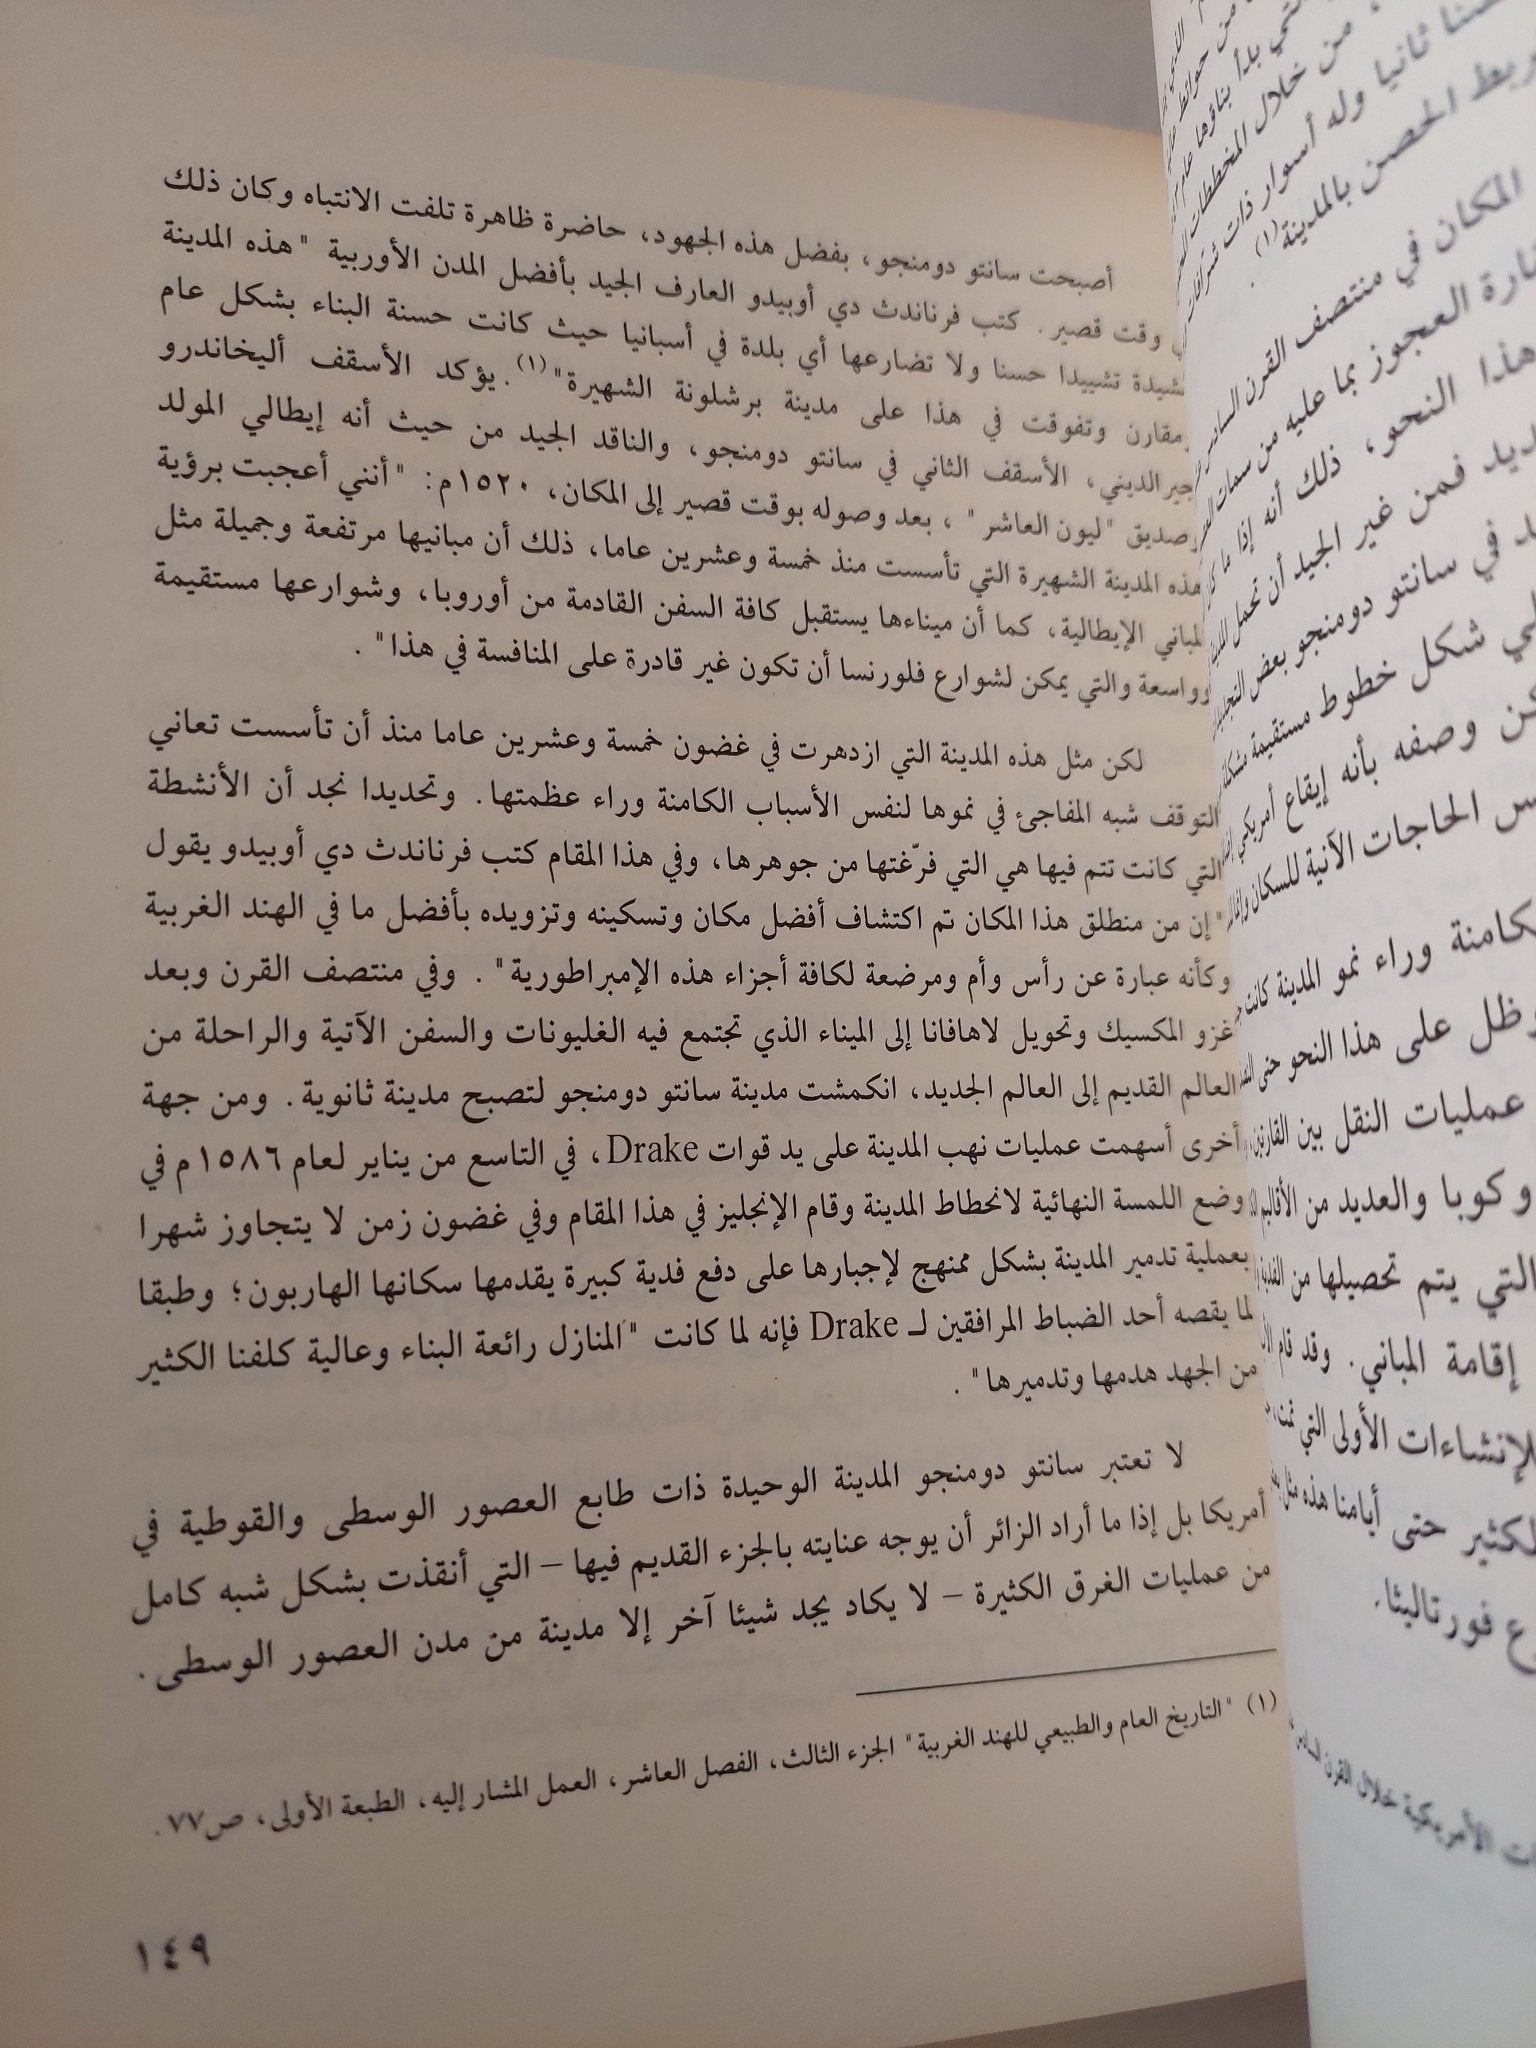 أصبحت سانتو دومنجو، بفضل هذه الجهود، حاضرة ظاهرة تلفت الانتباه وكان ذلك
وقت قصير. كتب فرناندث دي أوبيدو العارف الجيد بأفضل المدن الأوربية "هذه المدينة
مشيدة تشييدا حسنا ولا تضارعها أي بلدة في أسبانيا حيث كانت حسنة البناء بشكل عام
ومقارن وتفوقت في هذا على مدينة برشلونة الشهيرة"(١). يؤكد الأسقف أليخاندرو
جيرالديني، الأسقف الثاني في سانتو دومنجو، والناقد الجيد من حيث أنه إيطالي المولد
وصديق "ليون العاشر"، بعد وصوله بوقت قصير إلى المكان، ١٥٢٠م: "أنني أعجبت برؤية
هذه المدينة الشهيرة التي تأسست منذ خمسة وعشرين عاما، ذلك أن مبانيها مرتفعة وجميلة مثل
المباني الإيطالية، كما أن ميناءها يستقبل كافة السفن القادمة من أوروبا، وشوارعها مستقيمة
وواسعة والتي يمكن لشوارع فلورنسا أن تكون غير قادرة على المنافسة في هذا".
لكن مثل هذه المدينة التي ازدهرت في غضون خمسة وعشرين عاما منذ أن تأسست تعاني
التوقف شبه المفاجئ في نموها لنفس الأسباب الكامنة وراء عظمتها. وتحديدا نجد أن الأنشطة
التي كانت تتم فيها هي التي فرّغتها من جوهرها، وفي هذا المقام كتب فرناندث دي أوبيدو يقول
"إن من منطلق هذا المكان تم اكتشاف أفضل مكان وتسكينه وتزويده بأفضل ما في الهند الغربية
وكأنه عبارة عن رأس وأم ومرضعة لكافة أجزاء هذه الإمبراطورية". وفي منتصف القرن وبعد
غزو المكسيك وتحويل لاهافانا إلى الميناء الذي تجتمع فيه الغليونات والسفن الآتية والراحلة من
العالم القديم إلى العالم الجديد، انكمشت مدينة سانتو دومنجو لتصبح مدينة ثانوية. ومن جهة
أخرى أسهمت عمليات نهب المدينة على يد قوات Drake، في التاسع من يناير لعام ١٥٨٦م في
وضع اللمسة النهائية لانحطاط المدينة وقام الإنجليز في هذا المقام وفي غضون زمن لا يتجاوز شهرا
بعملية تدمير المدينة بشكل ممنهج لإجبارها على دفع فدية كبيرة يقدمها سكانها الهاربون؛ وطبقا
لما يقصه أحد الضباط المرافقين لـ Drake فإنه لما كانت "المنازل رائعة البناء وعالية كلفنا الكثير
من الجهد هدمها وتدميرها".
لا تعتبر سانتو دومنجو المدينة الوحيدة ذات طابع العصور الوسطى والقوطية في
أمريكا بل إذا ما أراد الزائر أن يوجه عنايته بالجزء القديم فيها – التي أنقذت بشكل شبه كامل
من عمليات الغرق الكثيرة – لا يكاد يجد شيئا آخر إلا مدينة من مدن العصور الوسطى.
(١) "التاريخ العام والطبيعي للهند الغربية" الجزء الثالث، الفصل العاشر، العمل المشار إليه، الطبعة الأولى، ص٧٧.
١٤٩
التي بدأ بناؤها عام
من خلال المخططات
ثانيا وله أسوار ذات شرافات
الحصن بالمدينة(١).
المكان في منتصف القرن
العجوز بما عليه من سمات
هذا النحو، ذلك أنه إذا ما
فمن غير الجيد أن تحمل
في سانتو دومنجو بعض
شكل خطوط مستقيمة
وصفه بأنه إيقاع أمريكي
الحاجات الآنية للسكان
وراء نمو المدينة كانت
وظل على هذا النحو حتى
عمليات النقل بين
وكوبا والعديد من الأقاليم
التي يتم تحصيلها من
إقامة المباني. وقد قام
للإنشاءات الأولى التي تمت،
الكثير حتى أيامنا هذه مثل
فورتاليثا.
الأمريكية خلال القرن